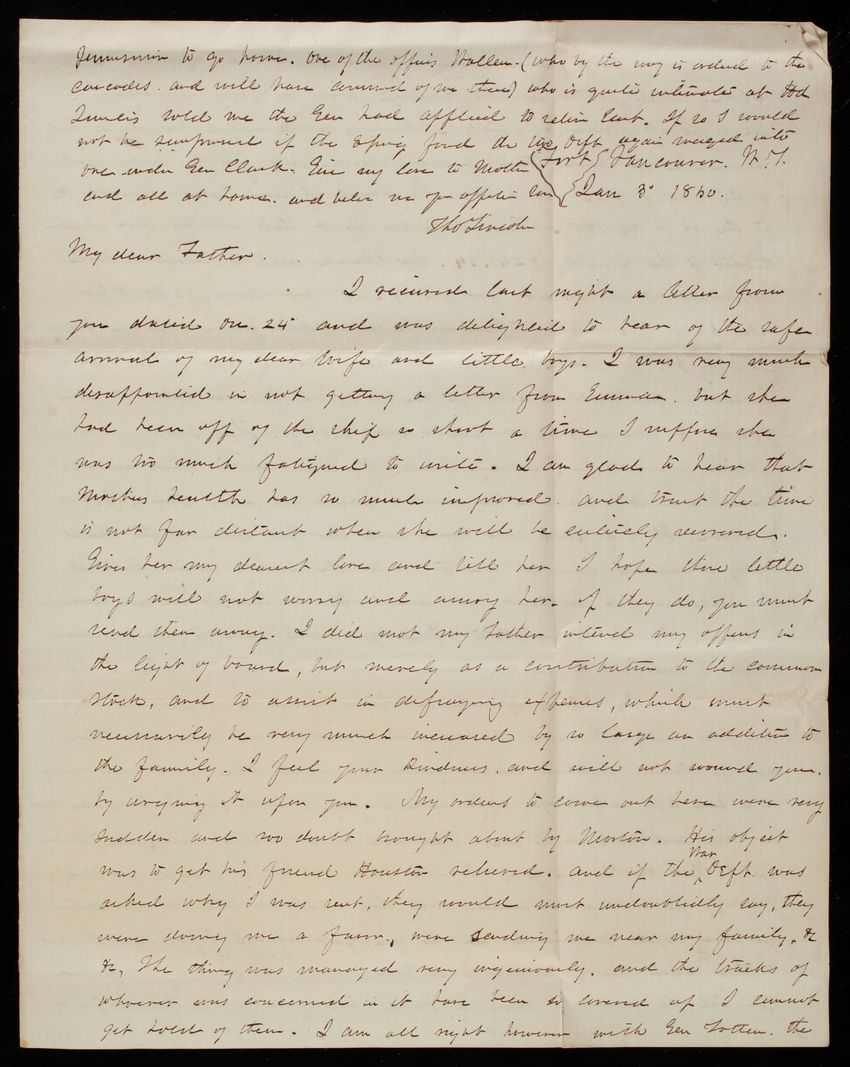 permission to go home. One of the officers Wallen - (who by the way is ordered to the
Cascades. and will have command of me there) who is quite intimate at Hd
Quarters told me the Gen had applied to return East. If so I would
not be surprised if the Spring found the two Depts again merged into
one under Gen Clark. Give my love to Mother
and all at home. and believe me yr affectn son
Tho Lincoln
Fort Vancouver. W. T.
Jan 3d 1860.
My dear Father.
I received last night a letter from
you dated Dec. 25 and was delighted to hear of the safe
arrival of my dear wife and little boys. I was very much
disappointed in not getting a letter from Emma. but she
had been off of the ship so short a time I suppose she
was too much fatigued to write. I am glad to hear that
Mothers health has so much improved. and trust the time
is not far distant when she will be entirely recovered.
Give her my dearest love and tell her I hope those little
boys will not worry and annoy her. if they do, you must
send them away. I did not my Father intend my offers in
the light of board, but merely as a contribution to the common
stock, and to assist in defraying expenses, which must
necessarily be very much increased by so large an addition to
the family. I feel your kindness. and will not wound you.
by urging it upon you. My orders to come out here were very
sudden and no doubt brought about by Morton. His object
was to get his friend Houston relieved. and if the War Dept. was
asked why I was sent, they would most undoubtedly say, they
were doing me a favor, were sending me near my family, &c
&c. The thing was managed very ingeniously. and the tracks of
whoever was concerned in it have been so covered up I cannot
get hold of them. I am all right however with Gen Totten. the